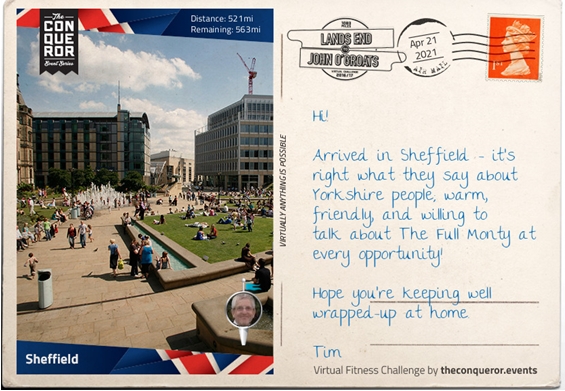 The
CON
QUE
ROR
Event Series
Distance: 521mi
Remaining: 563mi
Sheffield
VIRTUALLY ANYTHING IS POSSIBLE
LANDS END
TO
JOHN O'GROATS
Apr 21
2021
AIR MAIL
1ST
Hi!
Arrived in Sheffield - it's
right what they say about
Yorkshire people, warm,
friendly, and willing to
talk about The Full Monty at
every opportunity!
Hope you're keeping well
wrapped-up at home
Tim
Virtual Fitness Challenge by theconqueror.events